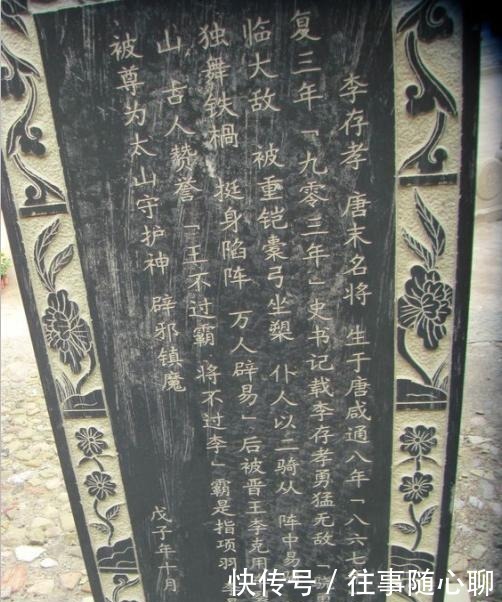 李存孝 唐末名将 生于唐咸通八年「八六七
复三年「九零三年」史书记载李存孝勇猛无敌
临大敌 被重铠橐弓坐槊 仆人以二骑从 阵中易
独舞铁檛 挺身陷阵 万人辟易」后被晋王李克用
山 古人赞誉「王不过霸 将不过李」霸是指项羽
被尊为太山守护神 辟邪镇魔
戊子年十月
快传号/往事随心聊